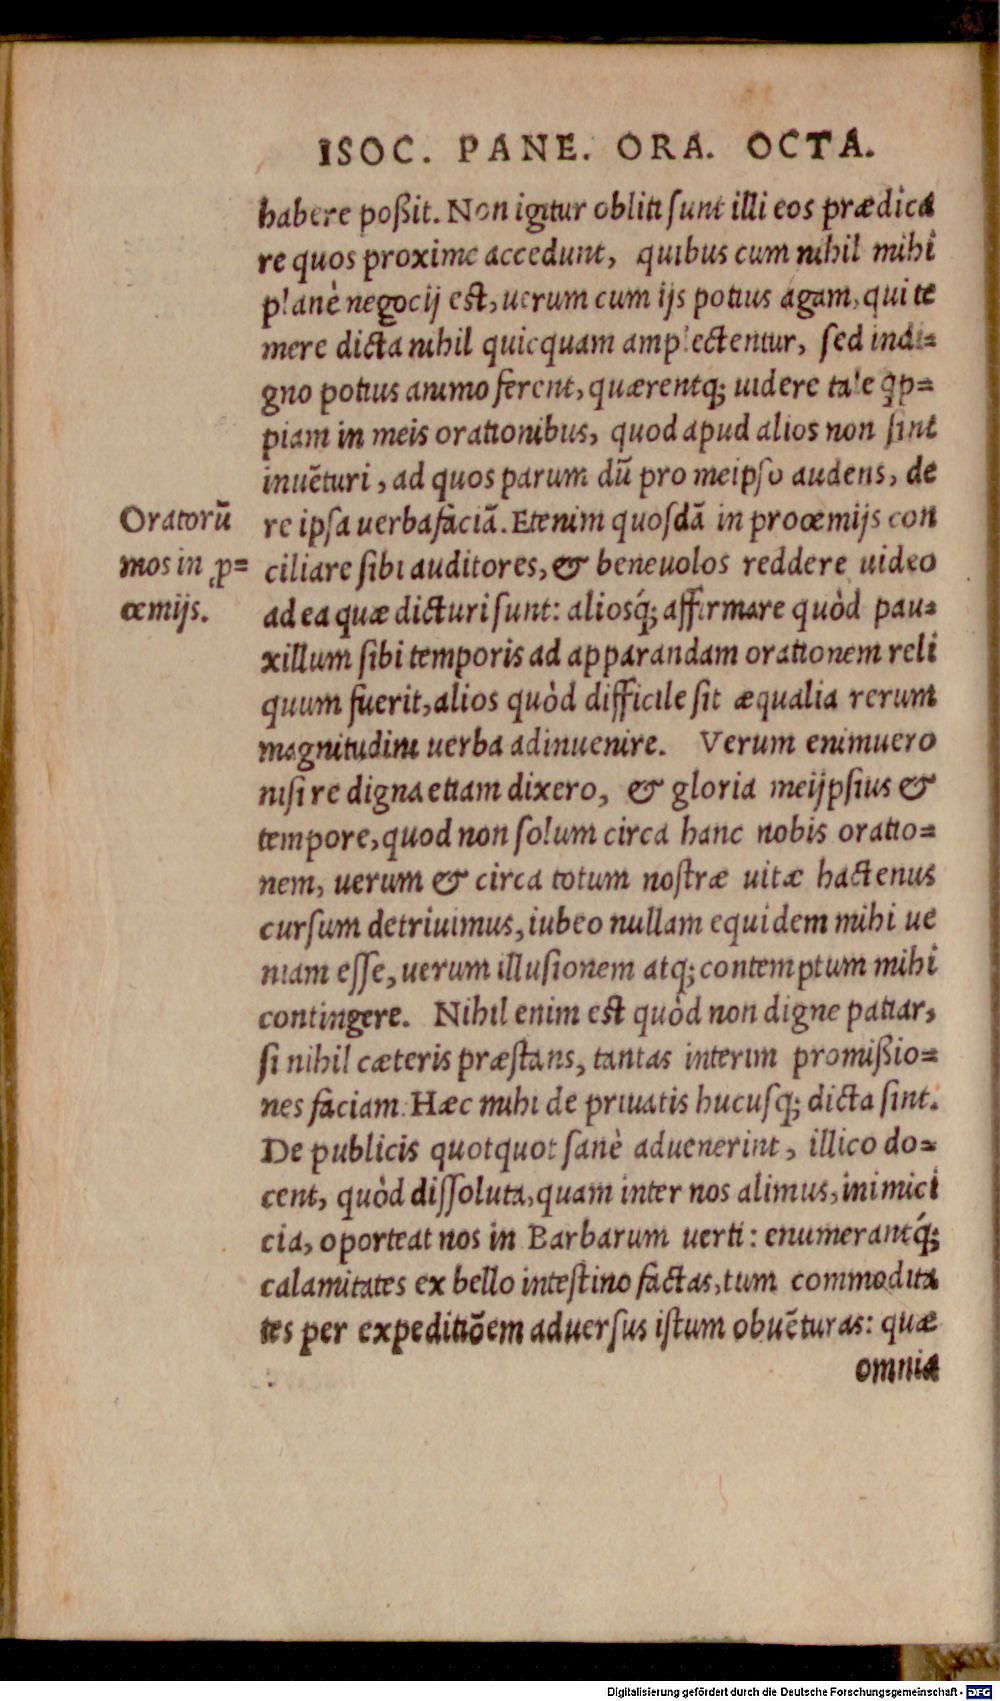 ISOC. PANE. ORA. OCTA.
habere poßit. Non igitur obliti sunt illi eos prædica
re quos proxime accedunt, quibus cum nihil mihi
planè negocij est, uerum cum ijs potius agam, qui te
mere dicta nihil quicquam amplectentur, sed indi=
gno potius animo ferent, quærentq; uidere tale qp=
piam in meis orationibus, quod apud alios non sint
inuẽturi, ad quos parum dũ pro meipso audens, de
re ipsa uerba faciã. Etenim quosdã in proœmijs con
ciliare sibi auditores, & beneuolos reddere uideo
ad ea quæ dicturi sunt: aliosq́; affirmare quòd pau=
xillum sibi temporis ad apparandam orationem reli
quum fuerit, alios quòd difficile sit æqualia rerum
magnitudini uerba adinuenire. Verum enimuero
nisi re digna etiam dixero, & gloria meijpsius &
tempore, quod non solum circa hanc nobis oratio=
nem, uerum & circa totum nostræ uitæ hactenus
cursum detriuimus, iubeo nullam equidem mihi ue
niam esse, uerum illusionem atq; contemptum mihi
contingere. Nihil enim est quòd non digne patiar,
si nihil cæteris præstans, tantas interim promißio=
nes faciam. Hæc mihi de priuatis hucusq; dicta sint.
De publicis quotquot sanè aduenerint, illico do=
cent, quòd dissoluta, quam inter nos alimus, inimici
cia, oporteat nos in Barbarum uerti: enumerantq́;
calamitates ex bello intestino factas, tum commodita
tes per expeditiõem aduersus istum obuẽturas: quæ
omnia
Oratorũ
mos in ꝓ=
œmijs.
Digitalisierung gefördert durch die Deutsche Forschungsgemeinschaft - DFG